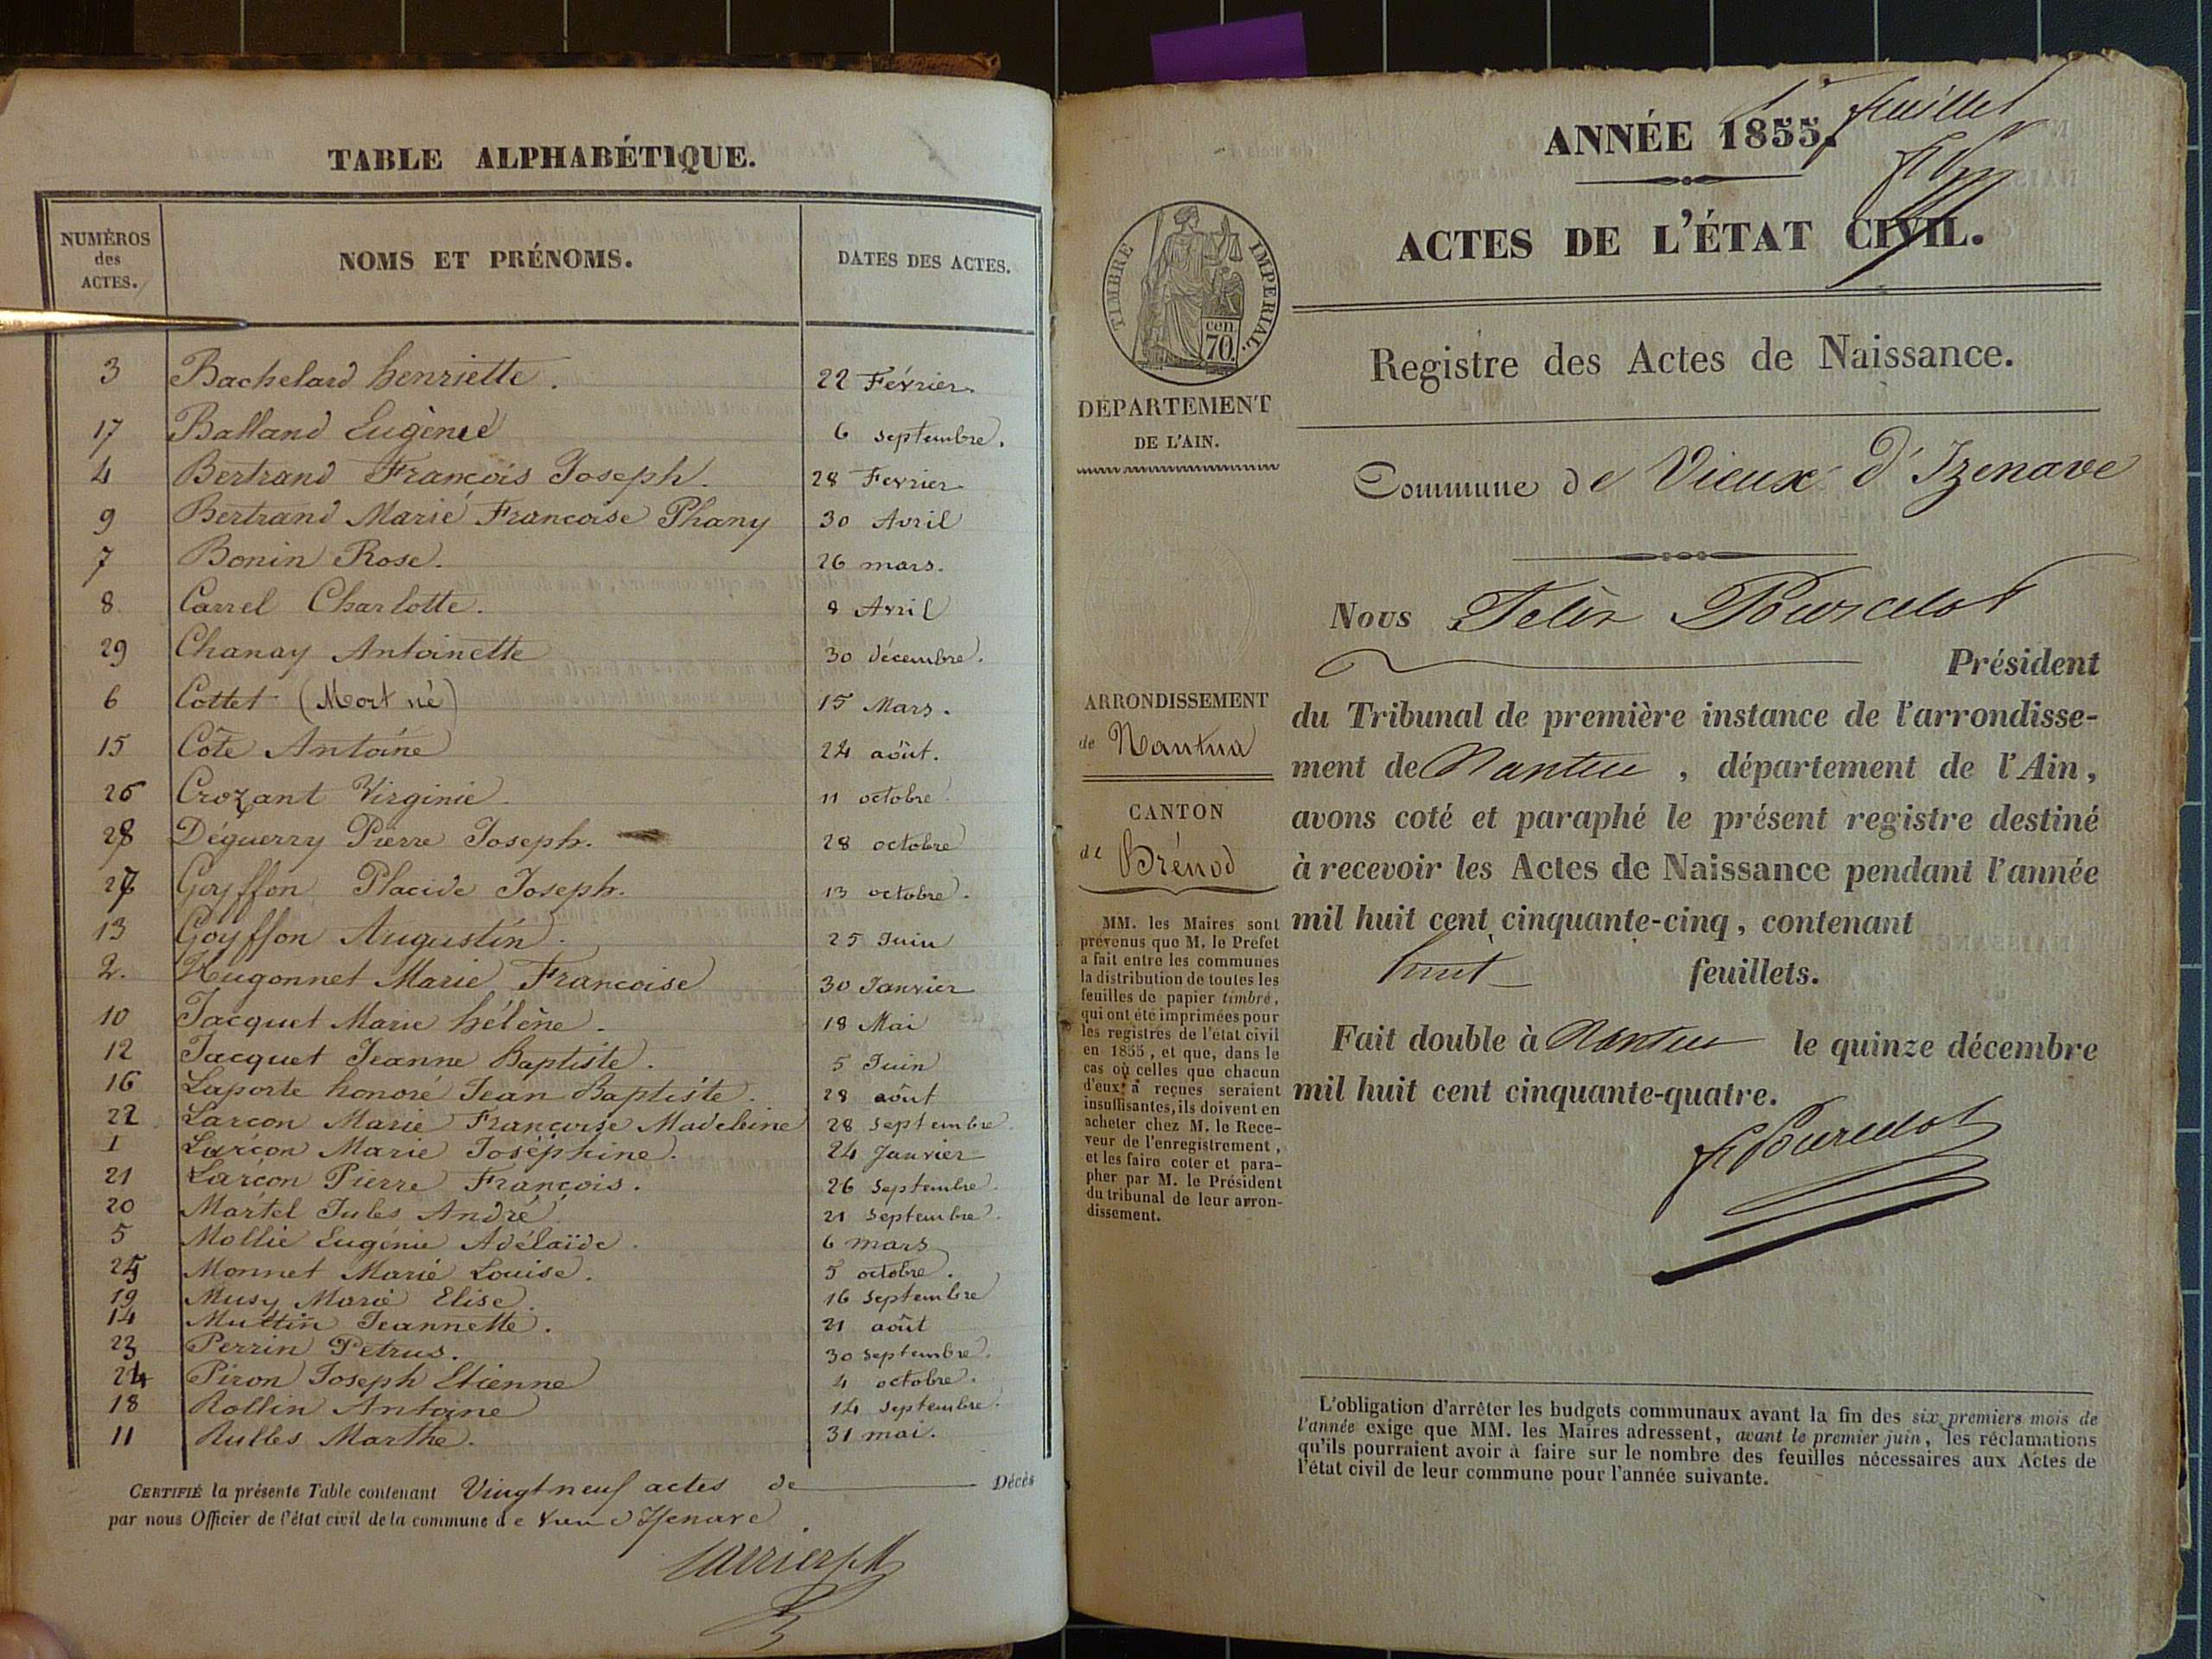 TABLE ALPHABÉTIQUE.
NUMÉROS des ACTES. NOMS ET PRÉNOMS. DATES DES ACTES.
3 Bachelard henriette. 22 Février.
17 Balland Eugènie 6 septembre.
4 Bertrand François Joseph. 28 Fevrier
9 Bertrand Marie Francoise Phany 30 Avril
7 Bonin Rose. 26 mars.
8 Carrel Charlotte. 8 Avril
29 Chanay Antoinette 30 décembre.
6 Cottet (Mort né) 15 Mars.
15 Côte Antoine 24 août.
26 Crozant Virginie 11 octobre
28 Déguerry Pierre Joseph. 28 octobre
27 Goyffon Placide Joseph. 13 octobre.
13 Goyffon Augustin. 25 Juin
2. Hugonnet Marie Francoise 30 Janvier
10 Jacquet Marie hélène. 18 Mai
12 Jacquet Jeanne Baptiste. 5 Juin
16 Laporte honoré Jean Baptiste. 28 août
22 Larçon Marie Françoise Madeleine 28 septembre
1 Larçon Marie Joséphine. 24 Janvier
21 Larçon Pierre François. 26 septembre
20 Martel Jules André 21 septembre
5 Mollie Eugénie Adélaïde. 6 mars
25 Monnet Marie Louise. 5 octobre.
19 Musy Marie Elise. 16 septembre
14 Muttin Jeannette. 21 août
23 Perrin Petrus. 30 septembre.
24 Piron Joseph Etienne 4 octobre.
18 Rollin Antoine 14 septembre.
11 Rulles Marthe. 31 mai.
CERTIFIÉ la présente Table contenant Vingt neuf actes de Décès
par nous Officier de l'état civil de la commune de Vieu d'Izenave
ANNÉE 1855.
1er feuillet
ACTES DE L'ÉTAT CIVIL.
TIMBRE IMPERIAL.
cen. 70.
Registre des Actes de Naissance.
DÉPARTEMENT
DE L'AIN.
Commune de Vieux d'Izenave
Nous Felix Pourcelot
Président
du Tribunal de première instance de l'arrondisse-
ment de Nantua, département de l'Ain,
avons coté et paraphé le présent registre destiné
à recevoir les Actes de Naissance pendant l'année
mil huit cent cinquante-cinq, contenant
huit feuillets.
Fait double à Nantua le quinze décembre
mil huit cent cinquante-quatre.
F Pourcelot
ARRONDISSEMENT
de Nantua
CANTON
de Brénod
MM. les Maires sont
prévenus que M. le Préfet
a fait entre les communes
la distribution de toutes les
feuilles de papier timbré,
qui ont été imprimées pour
les registres de l'état civil
en 1855, et que, dans le
cas où celles que chacun
d'eux a reçues seraient
insuffisantes, ils doivent en
acheter chez M. le Rece-
veur de l'enregistrement,
et les faire coter et para-
pher par M. le Président
du tribunal de leur arron-
dissement.
L'obligation d'arrêter les budgets communaux avant la fin des six premiers mois de
l'année exige que MM. les Maires adressent, avant le premier juin, les réclamations
qu'ils pourraient avoir à faire sur le nombre des feuilles nécessaires aux Actes de
l'état civil de leur commune pour l'année suivante.